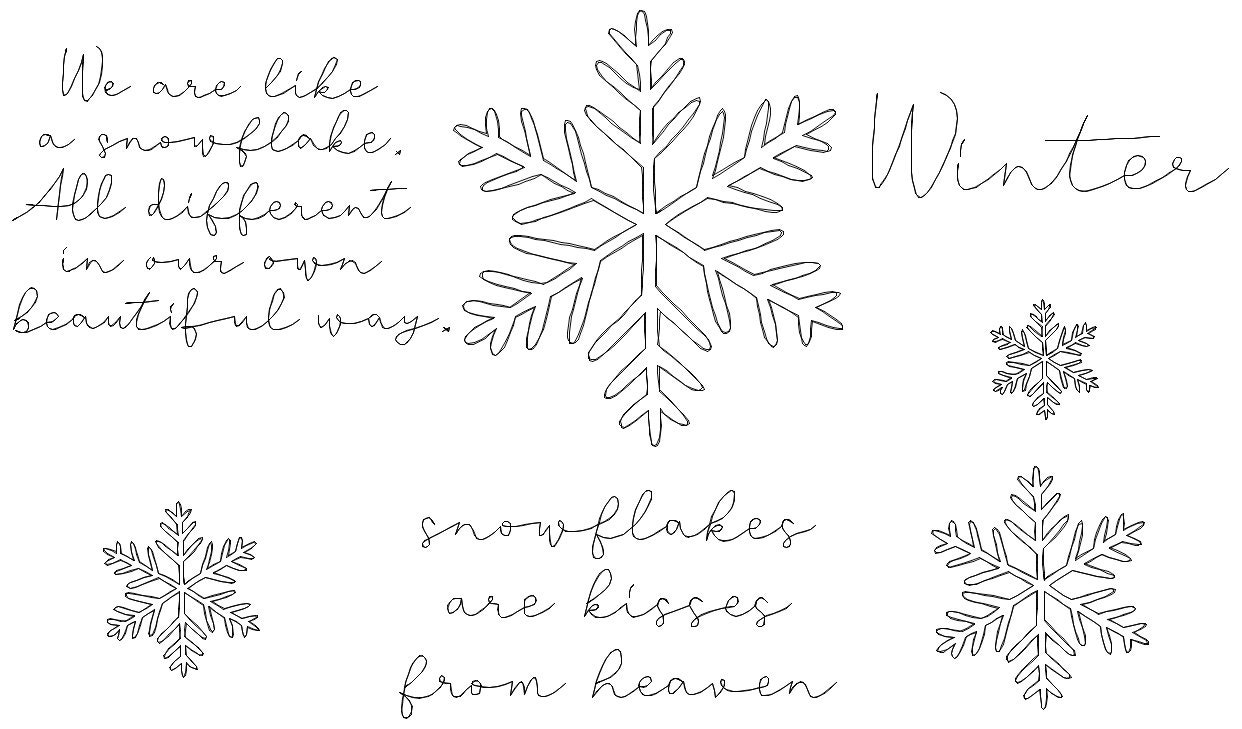 We are like
a snowflake.
All different
in our own
beautiful way.
Winter
snowflakes
are kisses
from heaven